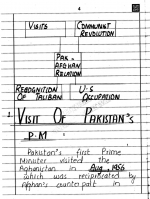 4
VISITS
COMMUNIST
REVOLUTION
PAK-
AFGHAN
RELATION
RECOGNITION
OF TALIBAN
U-S
OCCUPATION
1. VISIT OF PAKISTAN'S
P.M:
Pakistan's first Prime
Minister visited the
Afghanistan in Aug, 1956
which was reciprocated by
Afghan's counterpart in